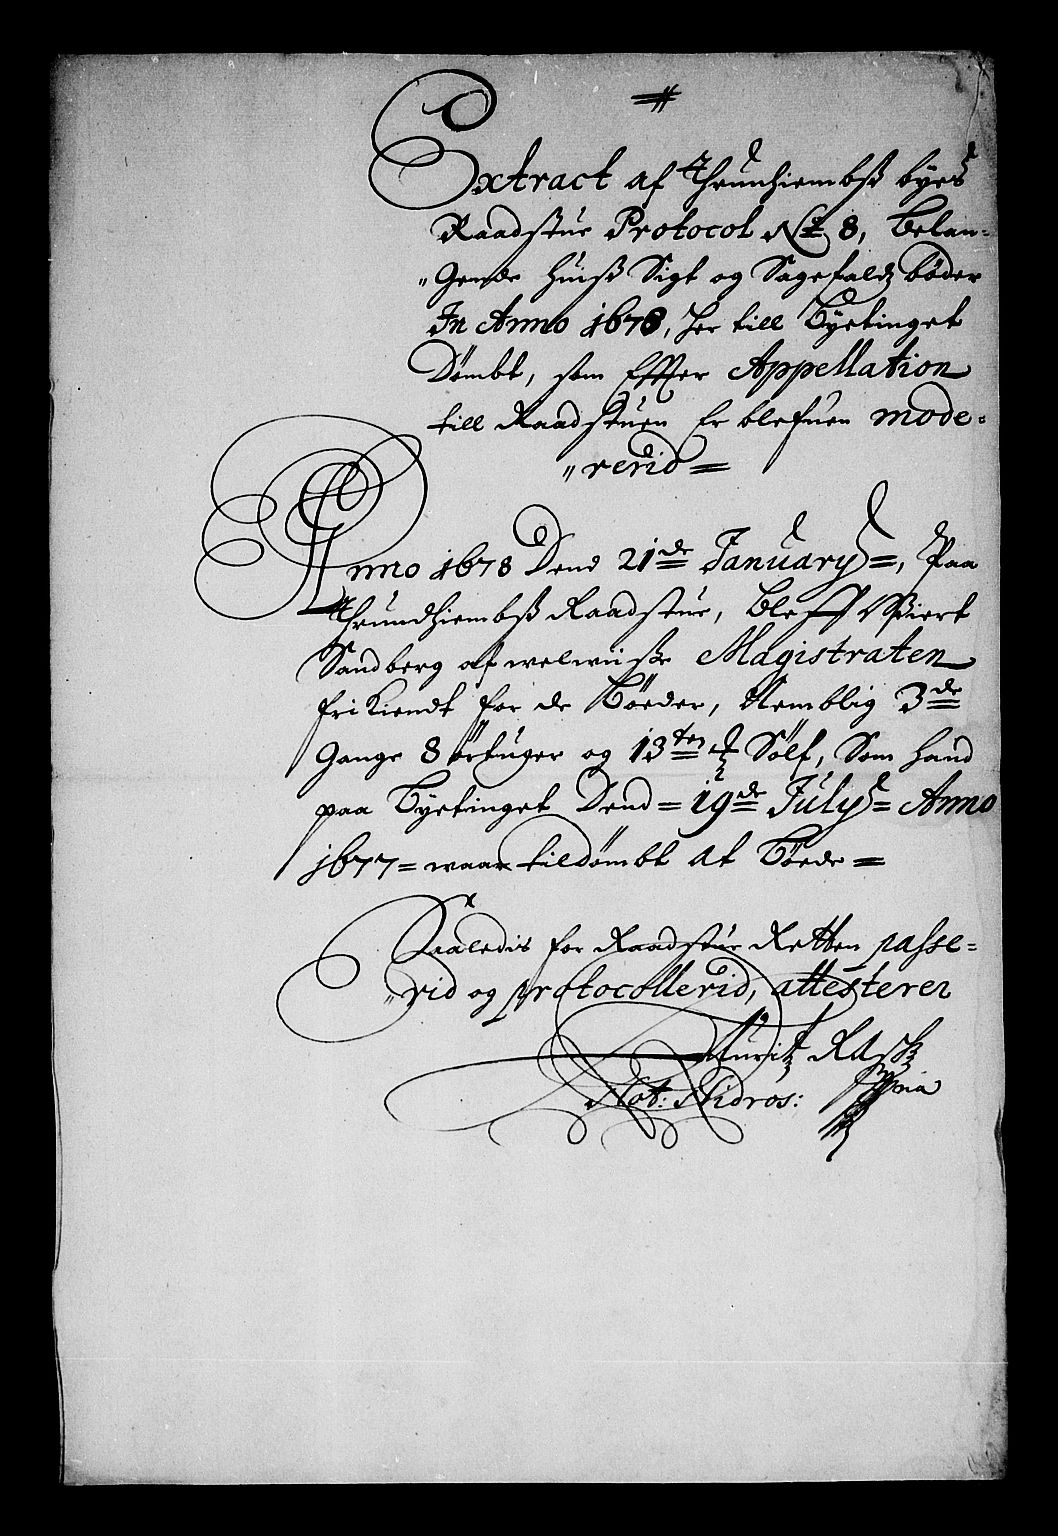 Extract af Thrunhiembß byes
Raadstue Protocol No 8, Belan-
"gende huiß Sigt og Sagefaldz bøder
In Anno 1678, her till Byetinget
Dømbt, som Effter Appellation
till Raadstuen Er blefuen mode-
"rerid =
Anno 1678 Dend 21de January =, Paa
Thrundhiembß Raadstue, bleff
Sandberg af welwiise Magistraten
frikiendt for de Bøeder, Nemblig 3de
gange 8 ørtuger og 13ten Sølf, Som hand
paa Byetinget Dend = 19de July = Anno
1677 = waar tildømbt at Bøede =
Saaledis for Raadstue Retten passe-
"rid og protocollerid, attesterer
Auritz Rask
Not: Nidros: ppria